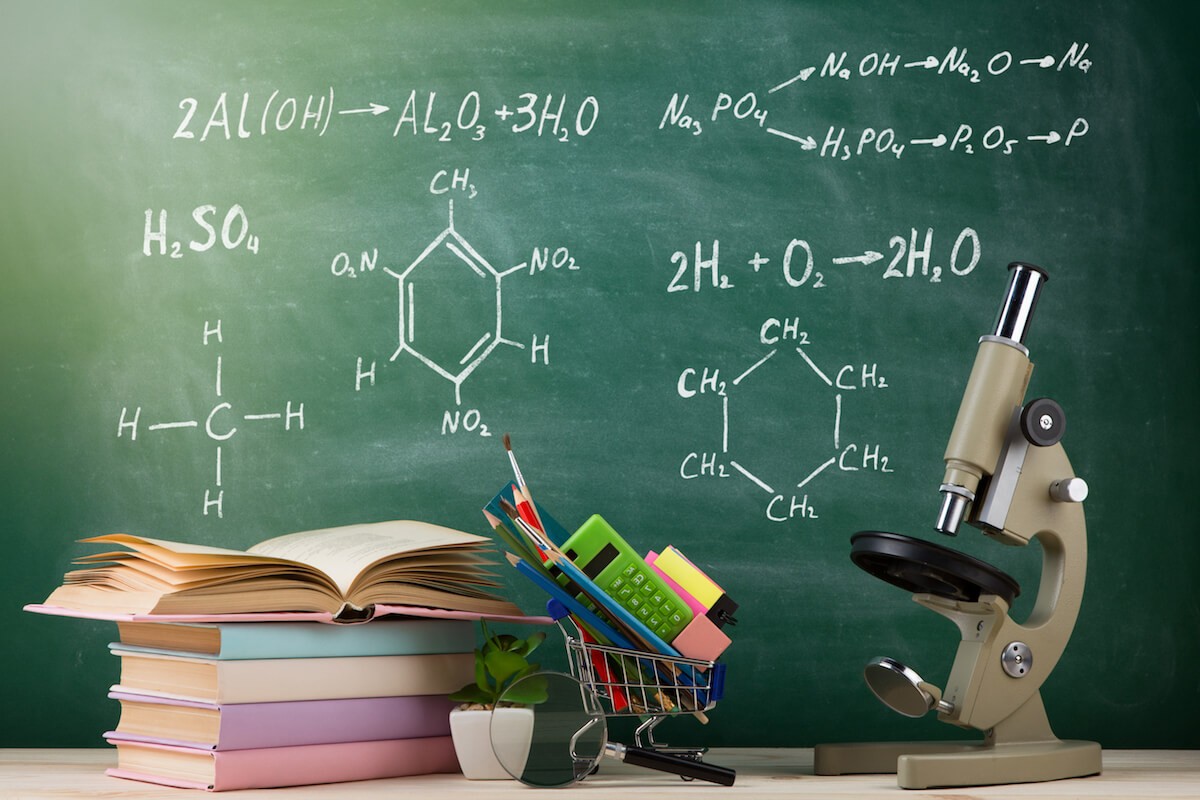 2Al(OH) → AL₂O₃ + 3H₂O
Na₃PO₄
NaOH → Na₂O → Na
H₃PO₄ → P₂O₅ → P
H₂SO₄
CH₃
O₂N
NO₂
H
H
NO₂
2H₂ + O₂ → 2H₂O
H
H — C — H
H
CH₂
CH₂
CH₂
CH₂
CH₂
CH₂